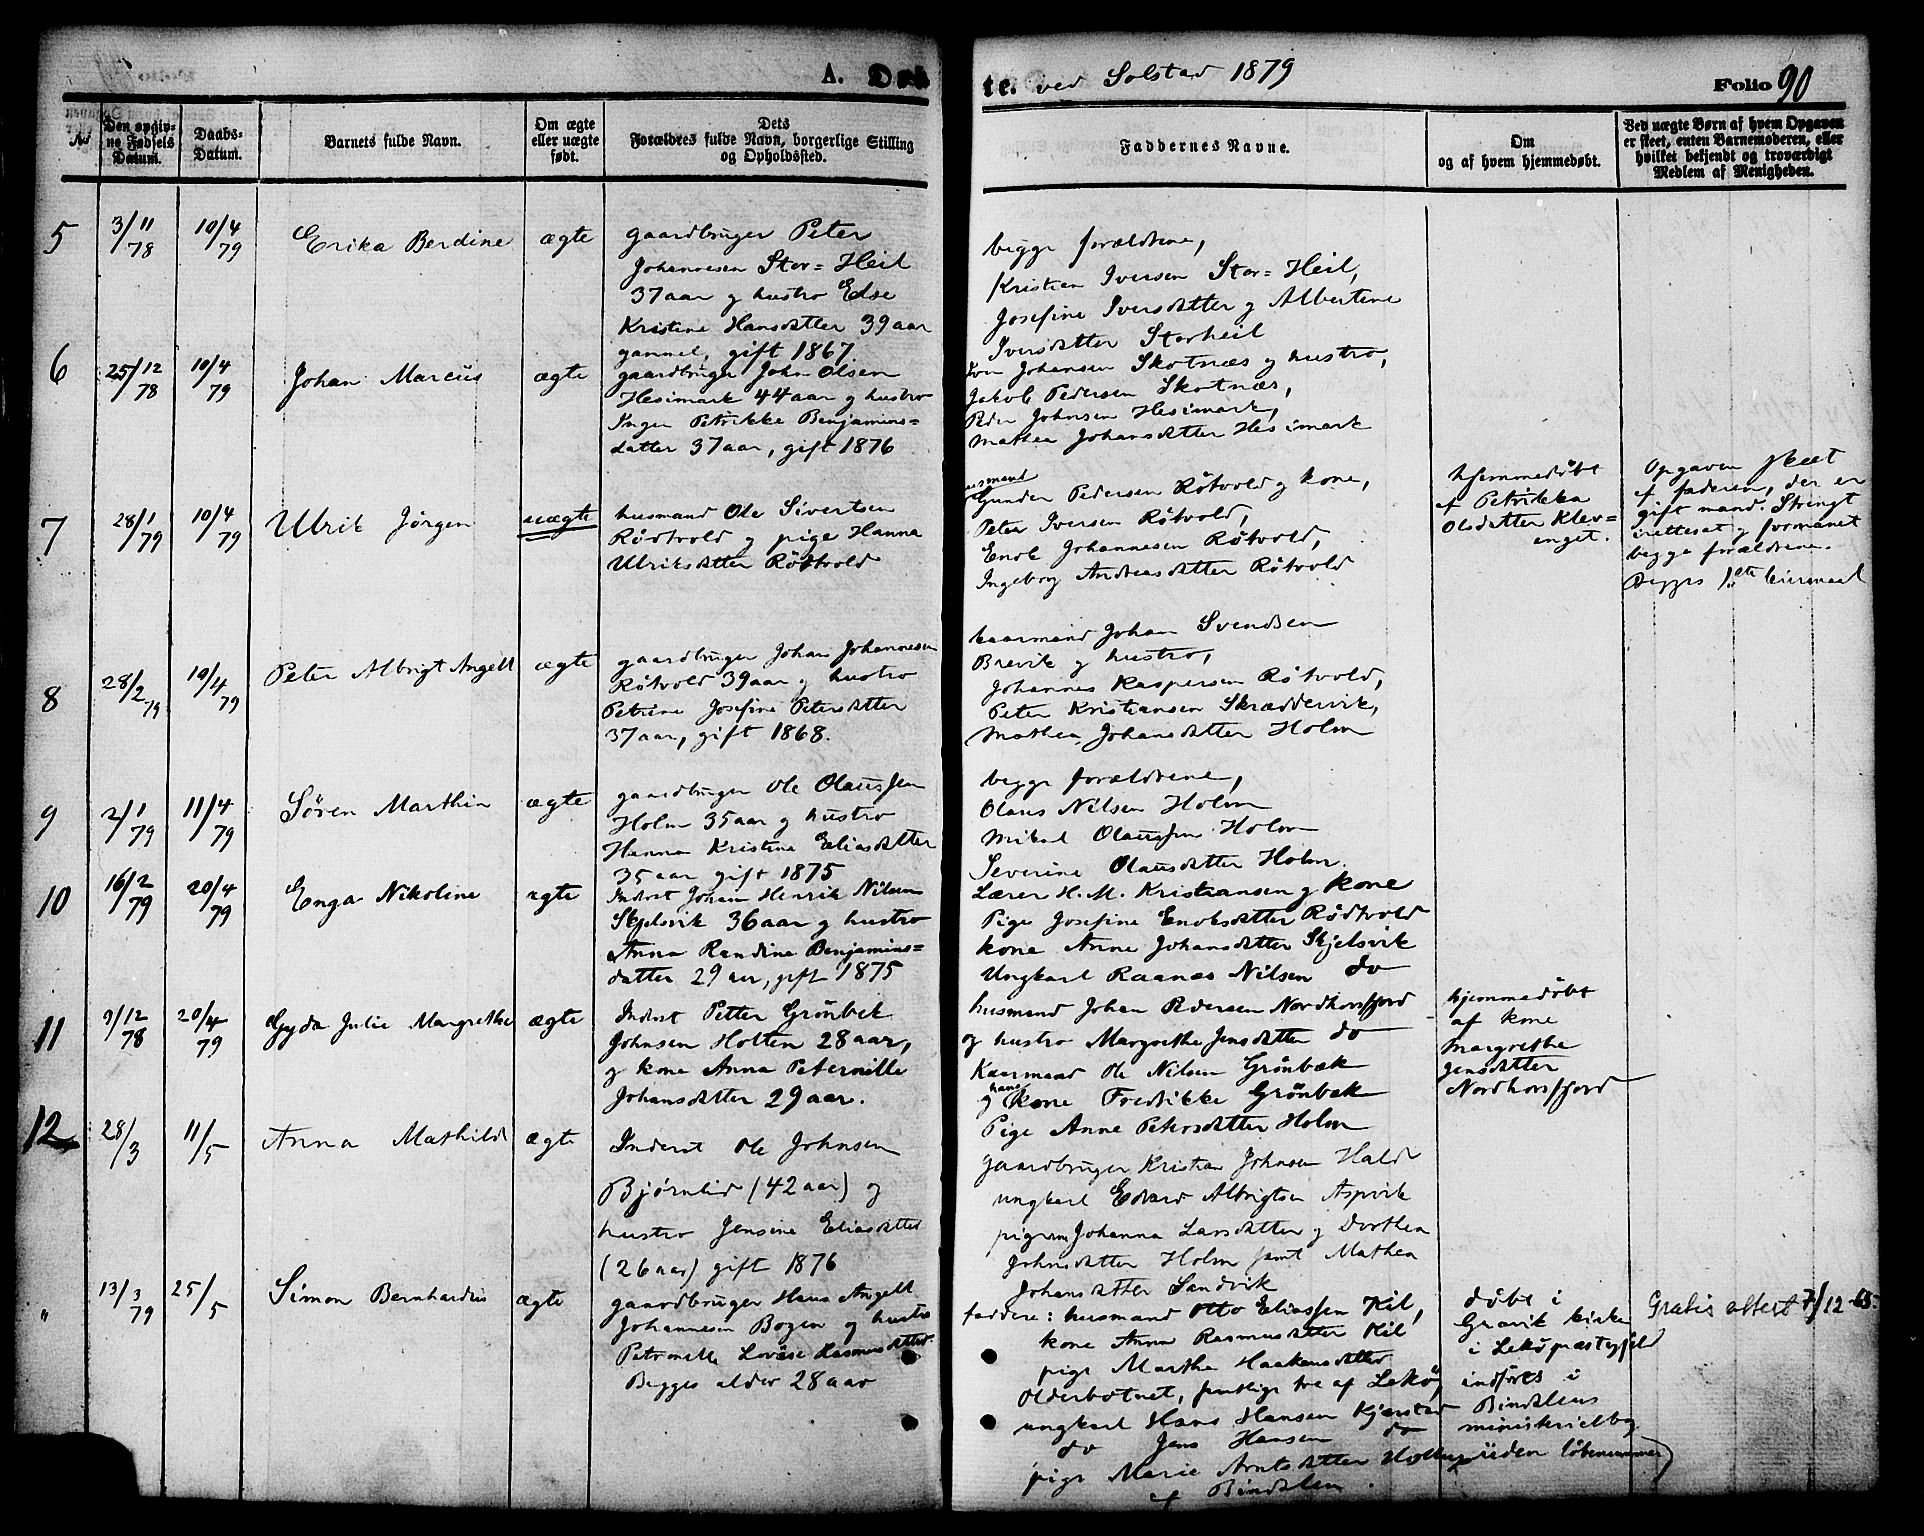 A. Døb
te. ved Solstad 1879
Folio 90
№
Den opgiv-
ne Fødsels
Datum.
Daabs-
Datum.
Barnets fulde Navn.
Om ægte
eller uægte
født.
Dets
Forældres fulde Navn, borgerlige Stilling
og Opholdssted.
Faddernes Navne.
Om
og af hvem hjemmedøbt.
Ved uægte Børn af hvem Opgaven
er skeet, enten Barnemoderen, eller
hvilket bekjendt og troværdigt
Medlem af Menigheden.
5
3/11 78
10/4 79
Erika Berdine
ægte
gaardbruger Peter
Johannesen Stor=Heil
37 aar g hustro Else
Kristine Hansdatter 39 aar
gammel, gift 1867.
begge forældrene,
Kristian Iversen Stor=Heil,
Josefine Iversdatter g Albertine
Iversdatter Storheil
6
25/12 78
10/4 79
Johan Marcüs
ægte
gaardbruger John Olsen
Hesimark 44 aar g hustro
Inger Petrikke Benjamins=
datter 37 aar, gift 1876
Johansen Skotnæs g hustro,
Jakob Pedersen Skotnæs,
Peder Johnsen Hesimark,
Mathea Johansdatter Hesimark
7
28/1 79
10/4 79
Ulrik Jørgen
uægte
husmand Ole Sivertsen
Rødtvold g pige Hanna
Ulriksdatter Røtvold
husmand
Gunder Pedersen Røtvold g kone,
Peter Iversen Røtvold,
Enok Johannesen Røtvold,
Ingeborg Andreasdatter Røtvold
hjemmedøbt
af Petrikka
Olsdatter Klev=
enget.
Opgaven skeet
af faderen, der er
gift mand. Strengt
irettesat g formanet
begge forældrene.
Begges 1ste leiermaal
8
28/2 79
10/4 79
Peter Albrigt Angell
ægte
gaardbruger Johan Johannesen
Røtvold 39 aar g hustro
Petrine Josefine Petersdatter
37 aar, gift 1868.
kaarmand Johan Svendsen
Brevik g hustro,
Johannes Kaspersen Røtvold,
Peter Kristiansen Skræddervik,
Mathea Johansdatter Holm
9
2/1 79
11/4 79
Søren Marthin
ægte
gaardbruger Ole Olaussen
Holm 35 aar g hustro
Hanna Kristine Eliasdatter
35 aar gift 1875
begge forældrene,
Olaus Nilsen Holm
Mikal Olaussen Holm
Severine Olausdatter Holm.
10
16/2 79
20/4 79
Enga Nikoline
ægte
Inderst Johan Henrik Nilsen
Skjelsvik 36 aar g hustro
Anna Randine Benjamins=
datter 29 aar, gift 1875
Lærer H. M. Kristiansen g kone
Pige Josefine Enoksdatter Rødtvold
kone Anne Johansdatter Skjelsvik
Ungkarl Raanæs Nilsen do
11
9/12 78
20/4 79
Gyda Julie Margrethe
ægte
Inderst Petter Grønbek
Johnsen Holten 28 aar,
g kone Anna Peternille
Johansdatter 29 aar.
husmand Johan Pedersen Nordhorsfjord
g hustro Margrethe Jensdatter do
Kaarmand Ole Nilsen Grønbæk
g hans kone Fredrikke Grønbæk
Pige Anne Petersdatter Holm
hjemmedøbt
af kone
Margrethe
Jensdatter
Nordhorsfjord
12
28/3
11/5
Anna Mathilde
ægte
Inderst Ole Johnsen
Bjørnlid (42 aar) og
hustro Jensine Eliasdatter
(26 aar) gift 1876
gaardbruger Kristian Johnsen Hald
ungkarl Edvard Albrigtsen Aspvik
pigerne Johanna Larsdatter g Dorthea
Johnsdatter Holm samt Mathea
Johansdatter Sandvik
"
13/3 79
25/5
Simon Bernhardus
ægte
gaardbruger Hans Angell
Johannesen Bogen og hustro
Petronelle Lovise Rasmusdatter
Begges alder 28 aar
faddere: husmand Otto Eliassen Kil,
kone Anna Rasmusdatter Kil
pige Marthe Haakensdatter
Olderbotnet, samtlige tre af Lekø,
ungkarl Hans Hansen Kjærstad
do Jens Hansen do
pige Marie Arntsdatter
af Bindalen.
døbt i
Gravik kirke
i Lekø præstegjeld
indføres i
Bindalens
ministerialbog
uden løbenummer)
Gratis attest 7/12-65.